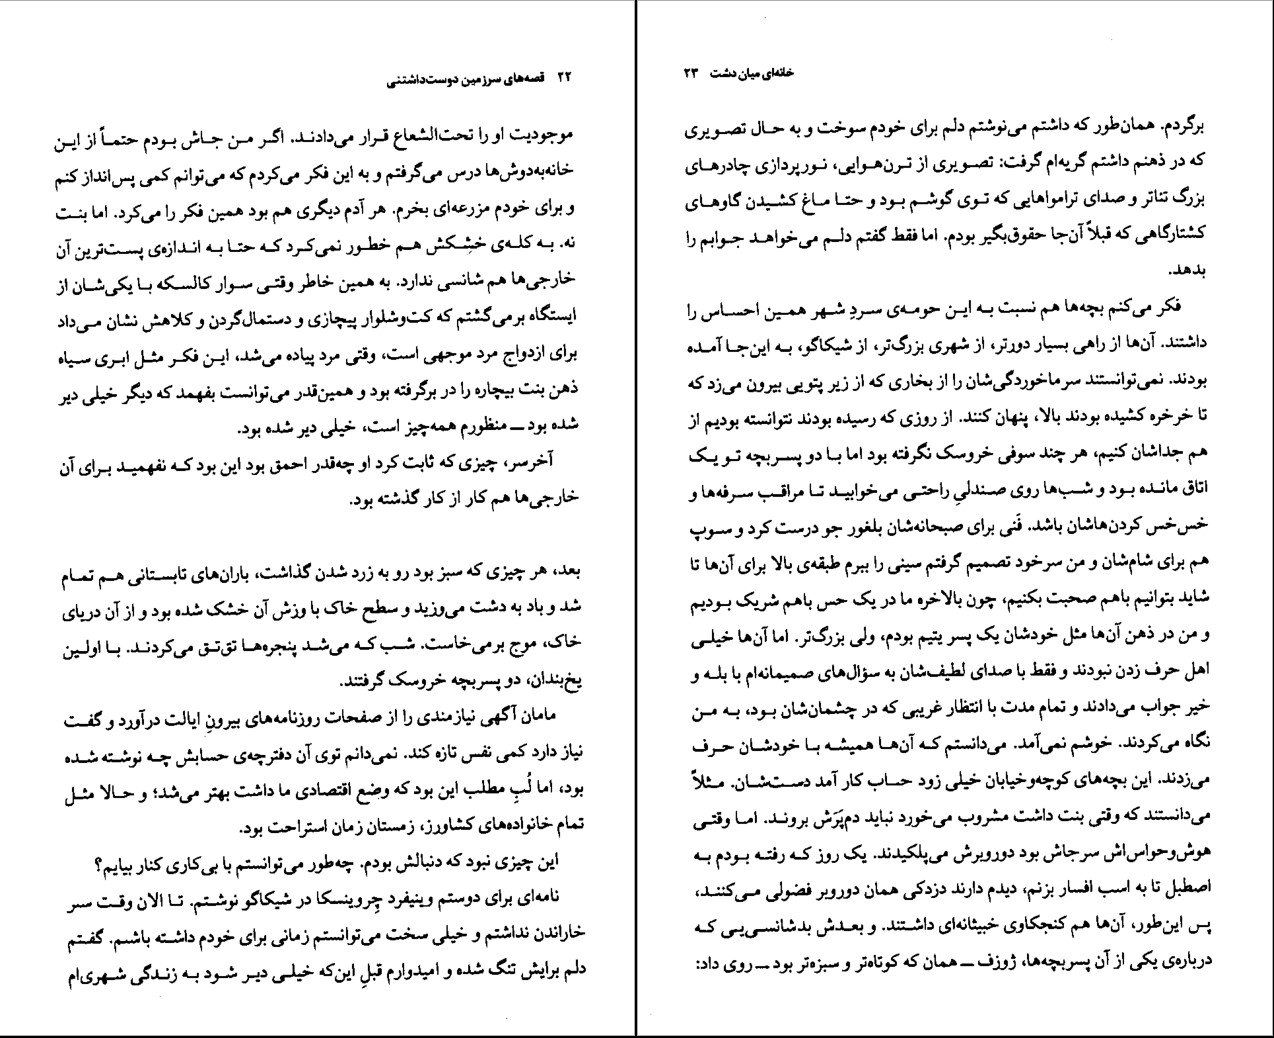 ۲۲ قصه‌های سرزمین دوست‌داشتنی
موجودیت او را تحت‌الشعاع قرار می‌دادند. اگر من جاش بودم حتماً از این
خانه‌به‌دوش‌ها درس می‌گرفتم و به این فکر می‌کردم که می‌توانم کمی پس‌انداز کنم
و برای خودم مزرعه‌ای بخرم. هر آدم دیگری هم بود همین فکر را می‌کرد. اما بنت
نه. به کله‌ی خشِکش هم خطور نمی‌کرد که حتا به اندازه‌ی پست‌ترین آن
خارجی‌ها هم شانسی ندارد. به همین خاطر وقتی سوار کالسکه با یکی‌شان از
ایستگاه برمی‌گشتم که کت‌وشلوار پیچازی و دستمال‌گردن و کلاهش نشان می‌داد
برای ازدواج مرد موجهی است، وقتی مرد پیاده می‌شد، این فکر مثل ابری سیاه
ذهن بنت بیچاره را در برگرفته بود و همین‌قدر می‌توانست بفهمد که دیگر خیلی دیر
شده بود ــ منظورم همه‌چیز است، خیلی دیر شده بود.
آخرسر، چیزی که ثابت کرد او چه‌قدر احمق بود این بود که نفهمید برای آن
خارجی‌ها هم کار از کار گذشته بود.
بعد، هر چیزی که سبز بود رو به زرد شدن گذاشت، باران‌های تابستانی هم تمام
شد و باد به دشت می‌وزید و سطح خاک با وزش آن خشک شده بود و از آن دریای
خاک، موج برمی‌خاست. شب که می‌شد پنجره‌ها تق‌تق می‌کردند. با اولین
یخ‌بندان، دو پسربچه خروسک گرفتند.
مامان آگهی نیازمندی را از صفحات روزنامه‌های بیرونِ ایالت درآورد و گفت
نیاز دارد کمی نفس تازه کند. نمی‌دانم توی آن دفترچه‌ی حسابش چه نوشته شده
بود، اما لُبِ مطلب این بود که وضع اقتصادی ما داشت بهتر می‌شد؛ و حالا مثل
تمام خانواده‌های کشاورز، زمستان زمان استراحت بود.
این چیزی نبود که دنبالش بودم. چه‌طور می‌توانستم با بی‌کاری کنار بیایم؟
نامه‌ای برای دوستم وینیفرد چِروینسکا در شیکاگو نوشتم. تا الان وقت سر
خاراندن نداشتم و خیلی سخت می‌توانستم زمانی برای خودم داشته باشم. گفتم
دلم برایش تنگ شده و امیدوارم قبلِ این‌که خیلی دیر شود به زندگی شهری‌ام
خانه‌ای میان دشت ۲۳
برگردم. همان‌طور که داشتم می‌نوشتم دلم برای خودم سوخت و به حال تصویری
که در ذهنم داشتم گریه‌ام گرفت: تصویری از ترن‌هوایی، نورپردازی چادرهای
بزرگ تئاتر و صدای ترامواهایی که توی گوشم بود و حتا ماغ کشیدن گاوهای
کشتارگاهی که قبلاً آن‌جا حقوق‌بگیر بودم. اما فقط گفتم دلم می‌خواهد جوابم را
بدهد.
فکر می‌کنم بچه‌ها هم نسبت به این حومه‌ی سردِ شهر همین احساس را
داشتند. آن‌ها از راهی بسیار دورتر، از شهری بزرگ‌تر، از شیکاگو، به این‌جا آمده
بودند. نمی‌توانستند سرماخوردگی‌شان را از بخاری که از زیر پتویی بیرون می‌زد که
تا خرخره کشیده بودند بالا، پنهان کنند. از روزی که رسیده بودند نتوانسته بودیم از
هم جداشان کنیم، هر چند سوفی خروسک نگرفته بود اما با دو پسربچه تو یک
اتاق مانده بود و شب‌ها روی صندلیِ راحتی می‌خوابید تا مراقب سرفه‌ها و
خس‌خس کردن‌هاشان باشد. فَنی برای صبحانه‌شان بلغور جو درست کرد و سوپ
هم برای شام‌شان و من سرخود تصمیم گرفتم سینی را ببرم طبقه‌ی بالا برای آن‌ها تا
شاید بتوانیم باهم صحبت بکنیم، چون بالاخره ما در یک حس باهم شریک بودیم
و من در ذهن آن‌ها مثل خودشان یک پسر یتیم بودم، ولی بزرگ‌تر. اما آن‌ها خیلی
اهل حرف زدن نبودند و فقط با صدای لطیف‌شان به سؤال‌های صمیمانه‌ام با بله و
خیر جواب می‌دادند و تمام مدت با انتظار غریبی که در چشمان‌شان بود، به من
نگاه می‌کردند. خوشم نمی‌آمد. می‌دانستم که آن‌ها همیشه با خودشان حرف
می‌زدند. این بچه‌های کوچه‌وخیابان خیلی زود حساب کار آمد دست‌شان. مثلاً
می‌دانستند که وقتی بنت داشت مشروب می‌خورد نباید دم‌پَرَش بروند. اما وقتی
هوش‌وحواس‌اش سرجاش بود دوروبرش می‌پلکیدند. یک روز که رفته بودم به
اصطبل تا به اسب افسار بزنم، دیدم دارند دزدکی همان دوروبر فضولی می‌کنند،
پس این‌طور، آن‌ها هم کنجکاوی خبیثانه‌ای داشتند. و بعدش بدشانسی‌یی که
درباره‌ی یکی از آن پسربچه‌ها، ژوزف ــ همان که کوتاه‌تر و سبزه‌تر بود ــ روی داد: